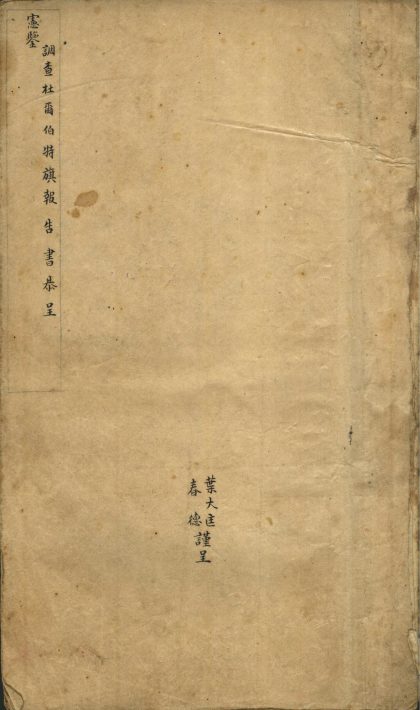 調查杜爾伯特旗報告書恭呈
憲鑒
葉大匡
春德謹呈